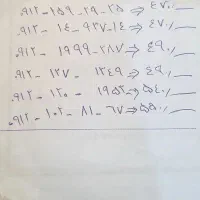 ۰۹۱۲-۱۵۹-۲۹-۲۵ ⇒ ۴۷۰/
۰۹۱۲-۱۴-۹۳۷-۱۴ ⇒ ۴۷۰/
۰۹۱۲-۱۹۹۹-۲۸۷ ⇒ ۴۹۰/
۰۹۱۲-۱۳۷-۱۳۴۹ ⇒ ۴۹۰/
۰۹۱۲-۱۲۰-۱۹۵۲ ⇒ ۵۴۰/
۰۹۱۲-۱۰۲-۸۱-۶۷ ⇒ ۵۵۰/